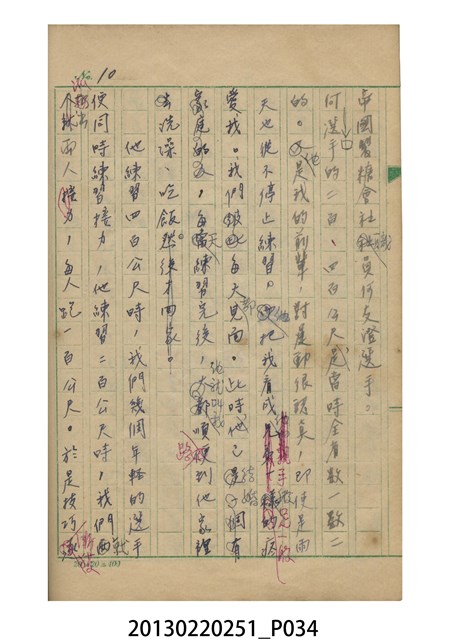 No. 10
帝國製糖會社職員何友澄選手。
何選手的二百、四百公尺是當時全省數一數二
的。他是我的前輩，對運動很認真，即使是雨
天也從不停止練習。他把我看成手足一般的疼
愛我。我們每天見面。此時他已結婚是個有
家庭的人，每天練習完後，他就叫我順便到他家裡
去洗澡、吃飯然後才回家。
他練習四百公尺時，我們幾個年輕的選手
便同時練習接力，他練習二百公尺時，我們兩
人接力，每人跑一百公尺。於是技巧
20×20=400
20130220251_P034